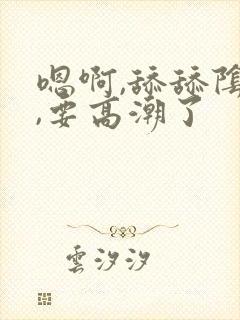 嗯啊,舔舔陰
,要高潮了
雲汐汐